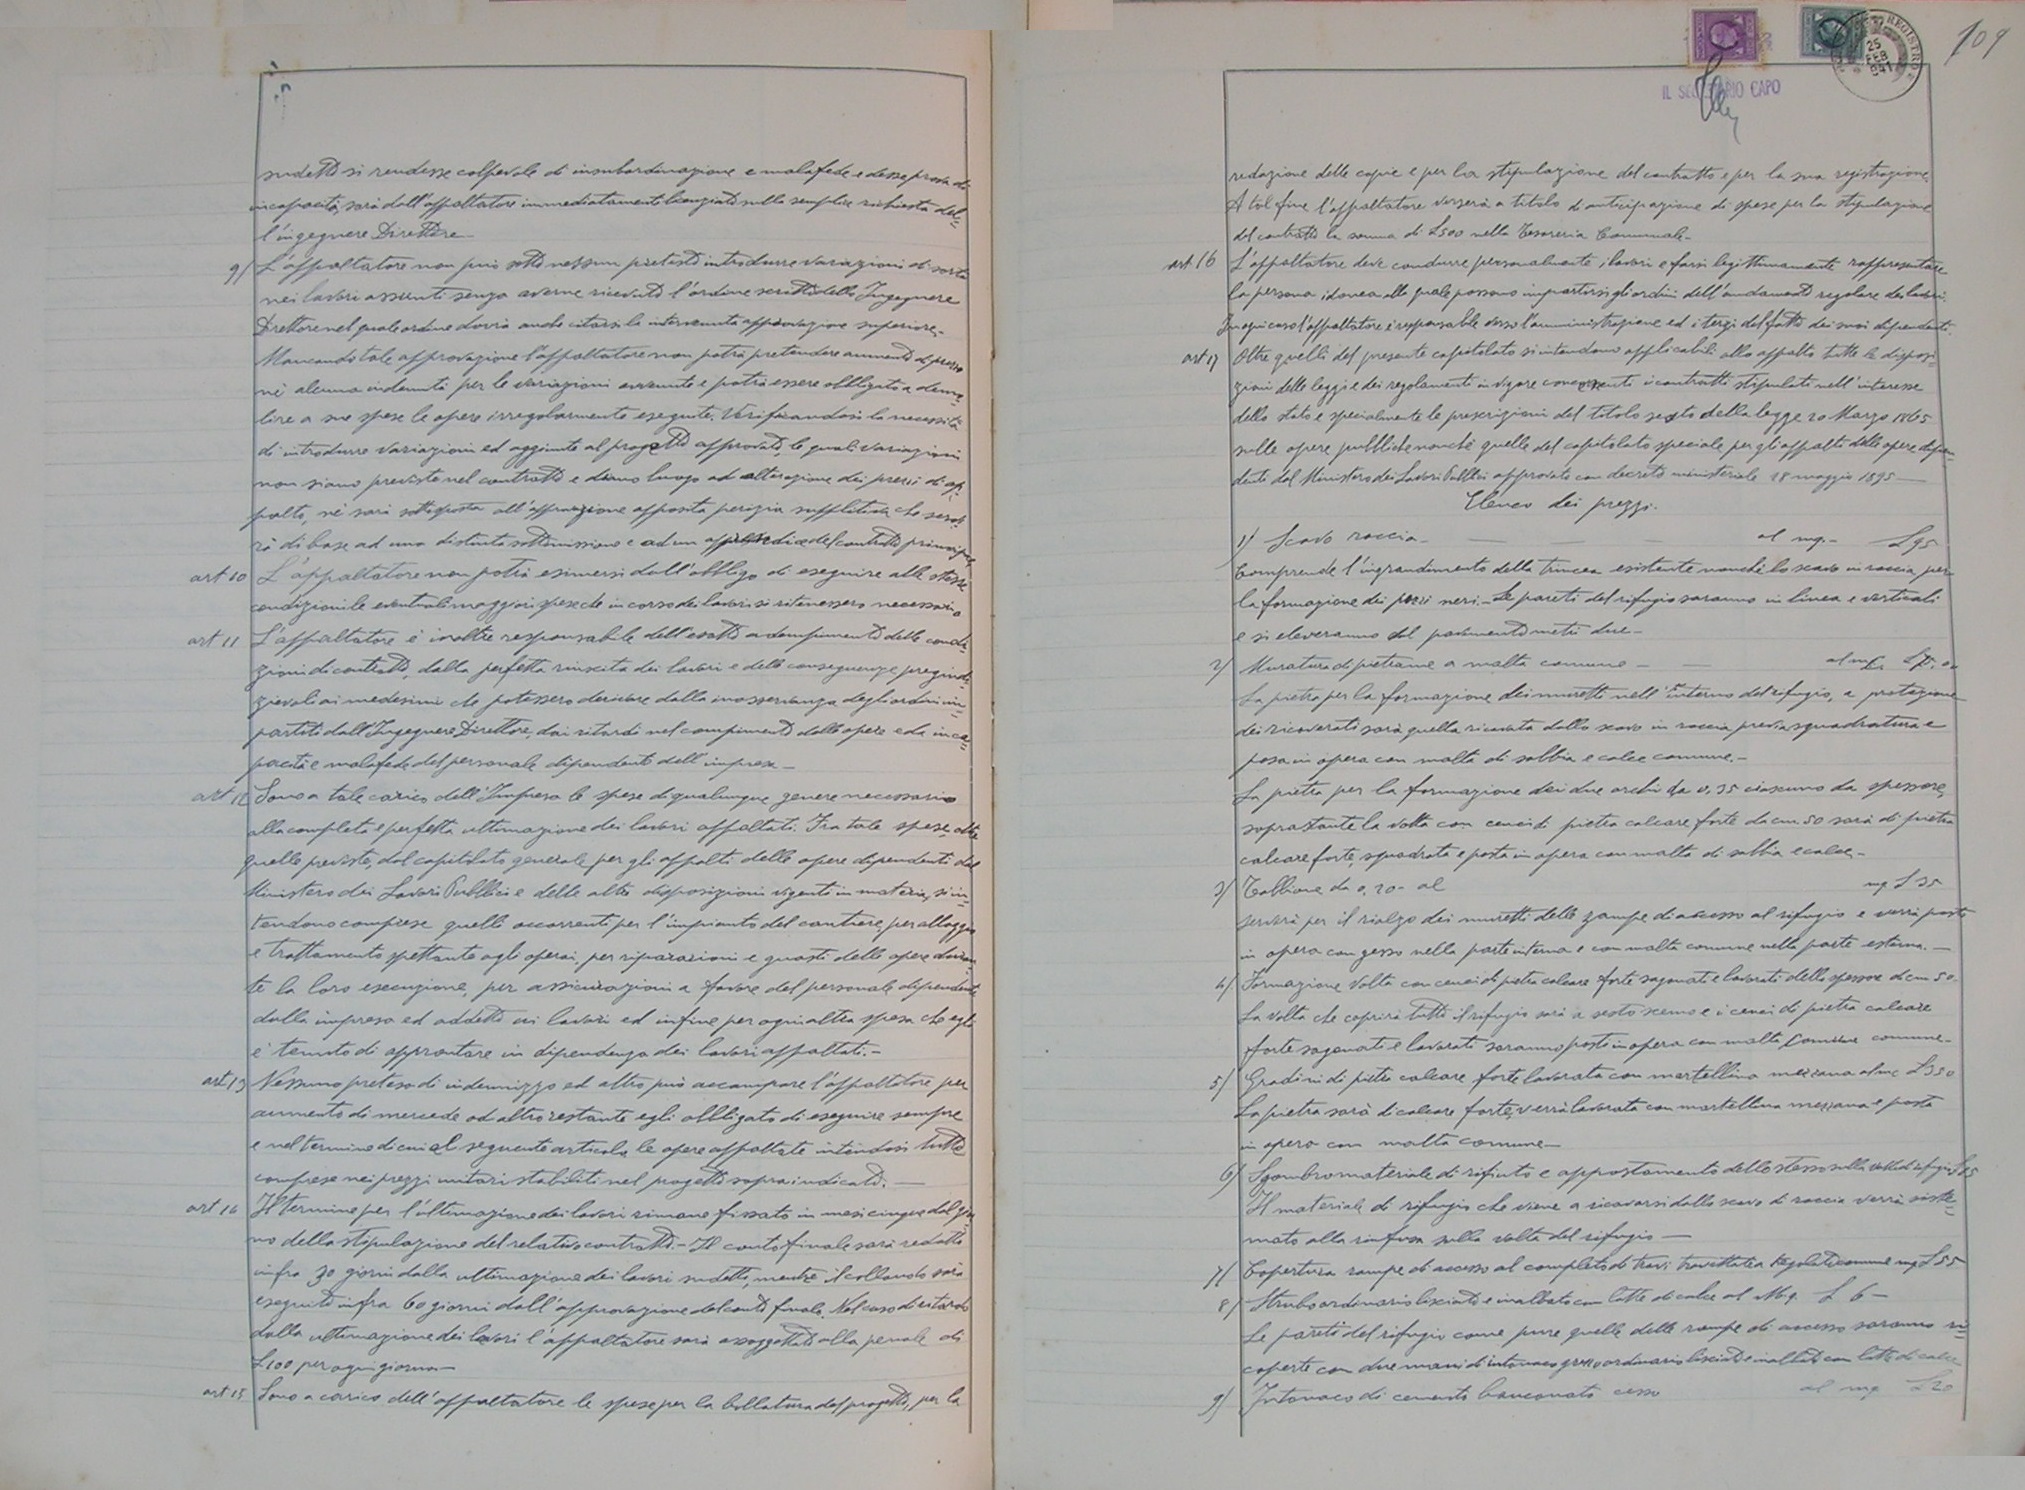 sudetto si rendesse colpevole di insubordinazione e malafede e desse prova di
incapacità, sarà dall'appaltatore immediatamente licenziato sulla semplice richiesta del-
l'ingegnere Direttore
9) L'appaltatore non può sotto nessun pretesto introdurre variazioni di sorta
nei lavori assunti senza averne ricevuto l'ordine scritto dello Ingegnere
Direttore nel quale ordine dovrà anche citarsi la intervenuta approvazione superiore.-
Mancando tale approvazione l'appaltatore non potrà pretendere aumento di prezzo
nè alcuna indennità per le variazioni avvenute e potrà essere obbligato a demo-
lire a sue spese le opere irregolarmente eseguite. Verificandosi la necessità
di introdurre variazioni ed aggiunte al progetto approvato, le quali variazioni
non siano previste nel contratto e diano luogo ad alterazione dei prezzi di ap-
palto, nè sarà sottoposta all'approvazione apposita perizia suppletiva che servi-
rà di base ad una distinta sottomissione e ad un appendice del contratto principale
art 10 L'appaltatore non potrà esimersi dall'obbligo di eseguire alle stesse
condizioni le eventuali maggiori spese che in corso dei lavori si ritenessero necessario
art 11 L'appaltatore è inoltre responsabile dell'esatto adempimento delle condi-
zioni di contratto, dalla perfetta riuscita dei lavori e delle conseguenze pregiudi-
zievoli ai medesimi che potessero derivare dalla inosservanza degli ordini im-
partiti dall'Ingegnere Direttore, dai ritardi nel compimento delle opere e da inca-
pacità e malafede del personale dipendente dell'impresa -
art 12 Sono a tale carico dell'Impresa le spese di qualunque genere necessario
alla completa e perfetta ultimazione dei lavori appaltati. Fra tale spese oltre
quelle previste, dal capitolato generale per gli appalti delle opere dipendenti dal
Ministero dei Lavori Pubblici e delle altre disposizioni vigenti in materia, si in-
tendono comprese quelle occorrenti per l'impianto del cantiere, per alloggio
e trattamento spettante agli operai, per riparazioni e guasti delle opere duran-
te la loro esecuzione, per assicurazioni a favore del personale dipendente
dalla impresa ed addetto ai lavori ed infine per ogni altra spesa che egli
è tenuto di approntare in dipendenza dei lavori appaltati.-
art 13 Nessuna pretesa di indennizzo ed altro può accampare l'appaltatore per
aumento di mercede od altro restante egli obbligato di eseguire sempre
e nel termine di cui al seguente articolo le opere appaltate intendosi tutto
comprese nei prezzi unitari stabiliti nel progetto sopraindicato. -
art 14 Il termine per l'ultimazione dei lavori rimane fissato in mesi cinque dal gior-
no della stipulazione del relativo contratto.- Il conto finale sarà redatto
infra 30 giorni dalla ultimazione dei lavori sudetti, mentre il collaudo sarà
eseguito infra 60 giorni dall'approvazione del conto finale. Nel caso di ritardo
dalla ultimazione dei lavori l'appaltatore sarà assoggettato alla penale di
L 100 per ogni giorno -
art 15 Sono a carico dell'appaltatore le spese per la bollatura del progetto, per la
109
IL SEGRETARIO CAPO
REGISTRO
redazione delle copie e per la stipulazione del contratto e per la sua registrazione.
A tal fine l'appaltatore verserà a titolo di anticipazione di spese per la stipulazione
del contratto la somma di L 500 nella Tesoreria Comunale -
art. 16 L'appaltatore deve condurre personalmente i lavori e farsi legittimamente rappresentare
la persona idonea alla quale possono impartirsi gli ordini dell'andamento regolare dei lavori.
In ogni caso l'appaltatore è responsabile verso l'amministrazione ed i terzi del fatto dei suoi dipendenti.
art 17 Oltre quelli del presente capitolato si intendono applicabili allo appalto tutte le disposi-
zioni delle leggi e dei regolamenti in vigore concernenti i contratti stipulati nell'interesse
dello stato e specialmente le prescrizioni del titolo sesto della legge 20 Marzo 1865
sulle opere pubbliche nonché quelle del capitolato speciale per gli appalti delle opere dipen-
denti dal Ministero dei Lavori Pubblici approvato con decreto ministeriale 28 maggio 1895 -
Elenco dei prezzi.
1) Scavo roccia - al mq.- L 95
Comprende l'ingrandimento della trincea esistente nonché lo scavo in roccia per
la formazione dei pozzi neri.- Le pareti del rifugio saranno in linea e verticali
e si eleveranno dal pavimento metri due -
2) Muratura di pietrame a malta comune - al mc
La pietra per la formazione dei muretti nell'interno del rifugio, a protezione
dei ricoverati sarà quella ricavata dallo scavo in roccia previa squadratura e
posa in opera con malta di sabbia e calce comune.-
La pietra per la formazione dei due archi da 0,35 ciascuno da spessore,
soprastante la volta con conci di pietra calcare forte da cm 50 sarà di pietra
calcare forte, squadrata e posta in opera con malta di sabbia e calce.-
3) Tabbione da 0,20 - al mq L 35
servirà per il rialzo dei muretti delle rampe di accesso al rifugio e verrà posto
in opera con gesso nella parte interna e con malta comune nella parte esterna. -
4) Formazione volta con conci di pietra calcare forte sagomati e lavorati dello spessore di cm 50.
La volta che coprirà tutto il rifugio sarà a sesto scemo e i conci di pietra calcare
forte sagomati e lavorati saranno posti in opera con malta comune -
5) Gradini di pietra calcare forte lavorata con martellina mezzana al mc L 350
La pietra sarà di calcare forte, verrà lavorata con martellina mezzana e posta
in opera con malta comune -
6) Sgombro materiale di rifiuto e appostamento dello stesso sulla volta di rifugio L 15
Il materiale di rifugio che viene a ricavarsi dallo scavo di roccia verrà siste-
mato alla rinfusa sulla volta del rifugio -
7) Copertura rampe di accesso al completo di travi travettate a tegolati comune mq L 55
8) Strabo ordinario lisciato e imalbato con latte di calce al Mq. L 6 -
Le pareti del rifugio come pure quelle delle rampe di accesso saranno ri-
coperte con due mani di intonaco grosso ordinario lisciato e imalbato con latte di calce
9) Intonaco di cemento al mq L 20